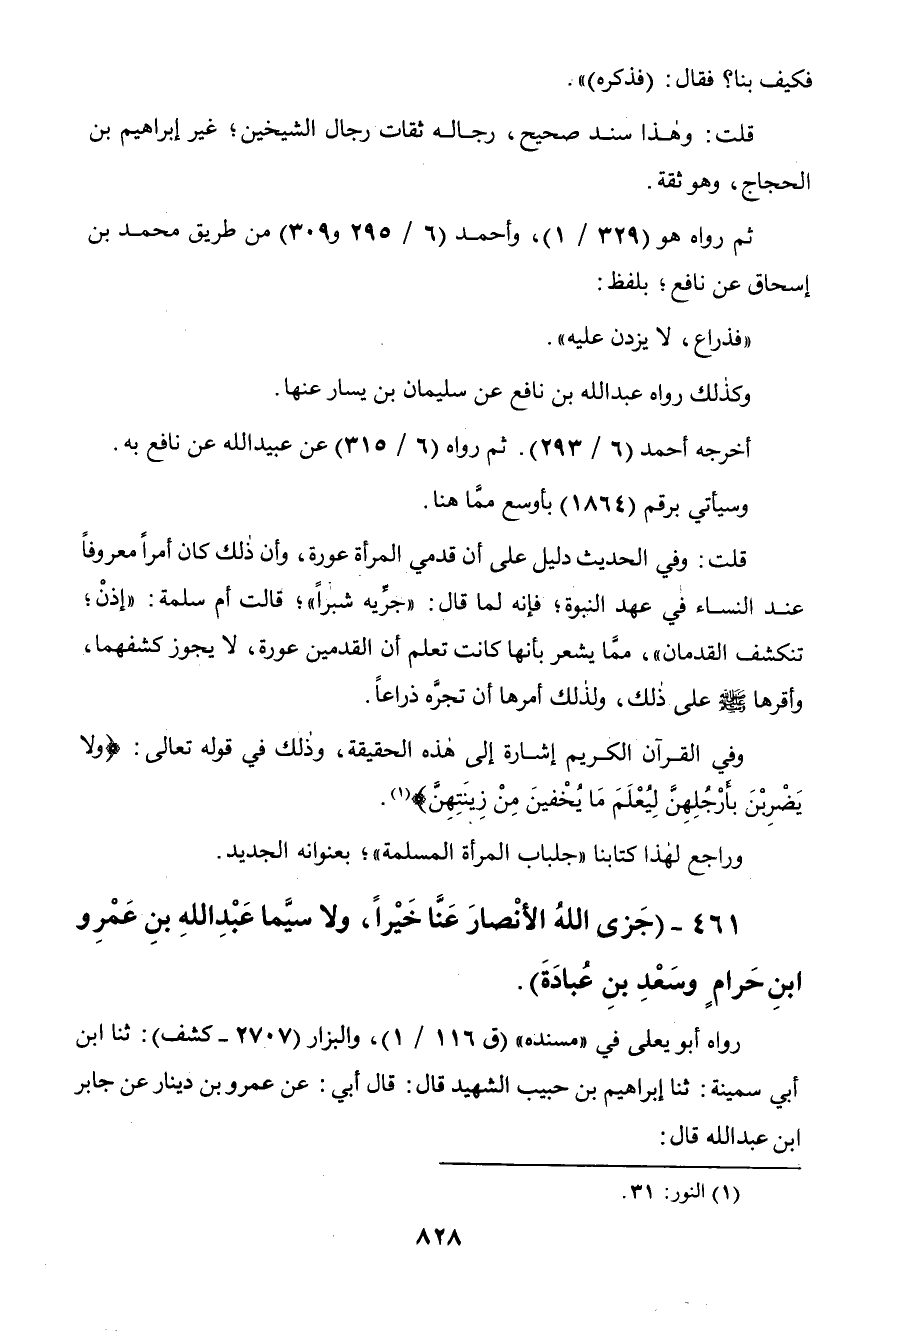 فكيف بنا؟ فقال: (فذكره)».
قلت: وهٰذا سند صحيح، رجاله ثقات رجال الشيخين؛ غير إبراهيم بن
الحجاج، وهو ثقة.
ثم رواه هو (٣٢٩ / ١)، وأحمد (٦ / ٢٩٥ و٣٠٩) من طريق محمد بن
إسحاق عن نافع؛ بلفظ:
«فذراع، لا يزدن عليه».
وكذٰلك رواه عبدالله بن نافع عن سليمان بن يسار عنها.
أخرجه أحمد (٦ / ٢٩٣). ثم رواه (٦ / ٣١٥) عن عبيدالله عن نافع به.
وسيأتي برقم (١٨٦٤) بأوسع ممَّا هنا.
قلت: وفي الحديث دليل على أن قدمي المرأة عورة، وأن ذٰلك كان أمراً معروفاً
عند النساء في عهد النبوة؛ فإنه لما قال: «جرِّيه شبراً»؛ قالت أم سلمة: «إذنْ؛
تنكشف القدمان»، ممَّا يشعر بأنها كانت تعلم أن القدمين عورة، لا يجوز كشفهما،
وأقرها ﷺ على ذٰلك، ولذٰلك أمرها أن تجرَّه ذراعاً.
وفي القرآن الكريم إشارة إلى هٰذه الحقيقة، وذٰلك في قوله تعالى: ﴿ولا
يَضْرِبْنَ بأَرْجُلِهِنَّ لِيُعْلَمَ مَا يُخْفينَ مِنْ زِينَتِهِنَّ﴾(١).
وراجع لهٰذا كتابنا «جلباب المرأة المسلمة»؛ بعنوانه الجديد.
٤٦١ - (جَزى اللهُ الأنْصارَ عَنَّا خَيْراً، ولا سيَّما عَبْدِاللهِ بنِ عَمْرِو
ابنِ حَرامٍ وسَعْدِ بنِ عُبادَةَ).
رواه أبو يعلى في «مسنده» (ق ١١٦ / ١)، والبزار (٢٧٠٧ - كشف): ثنا ابن
أبي سمينة: ثنا إبراهيم بن حبيب الشهيد قال: قال أبي: عن عمرو بن دينار عن جابر
ابن عبدالله قال:
(١) النور: ٣١.
٨٢٨